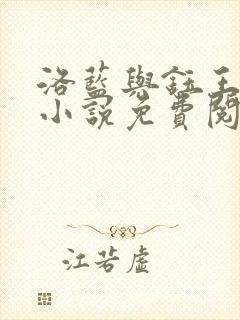 洛藍與鈺王
小說免費閱
江若虛